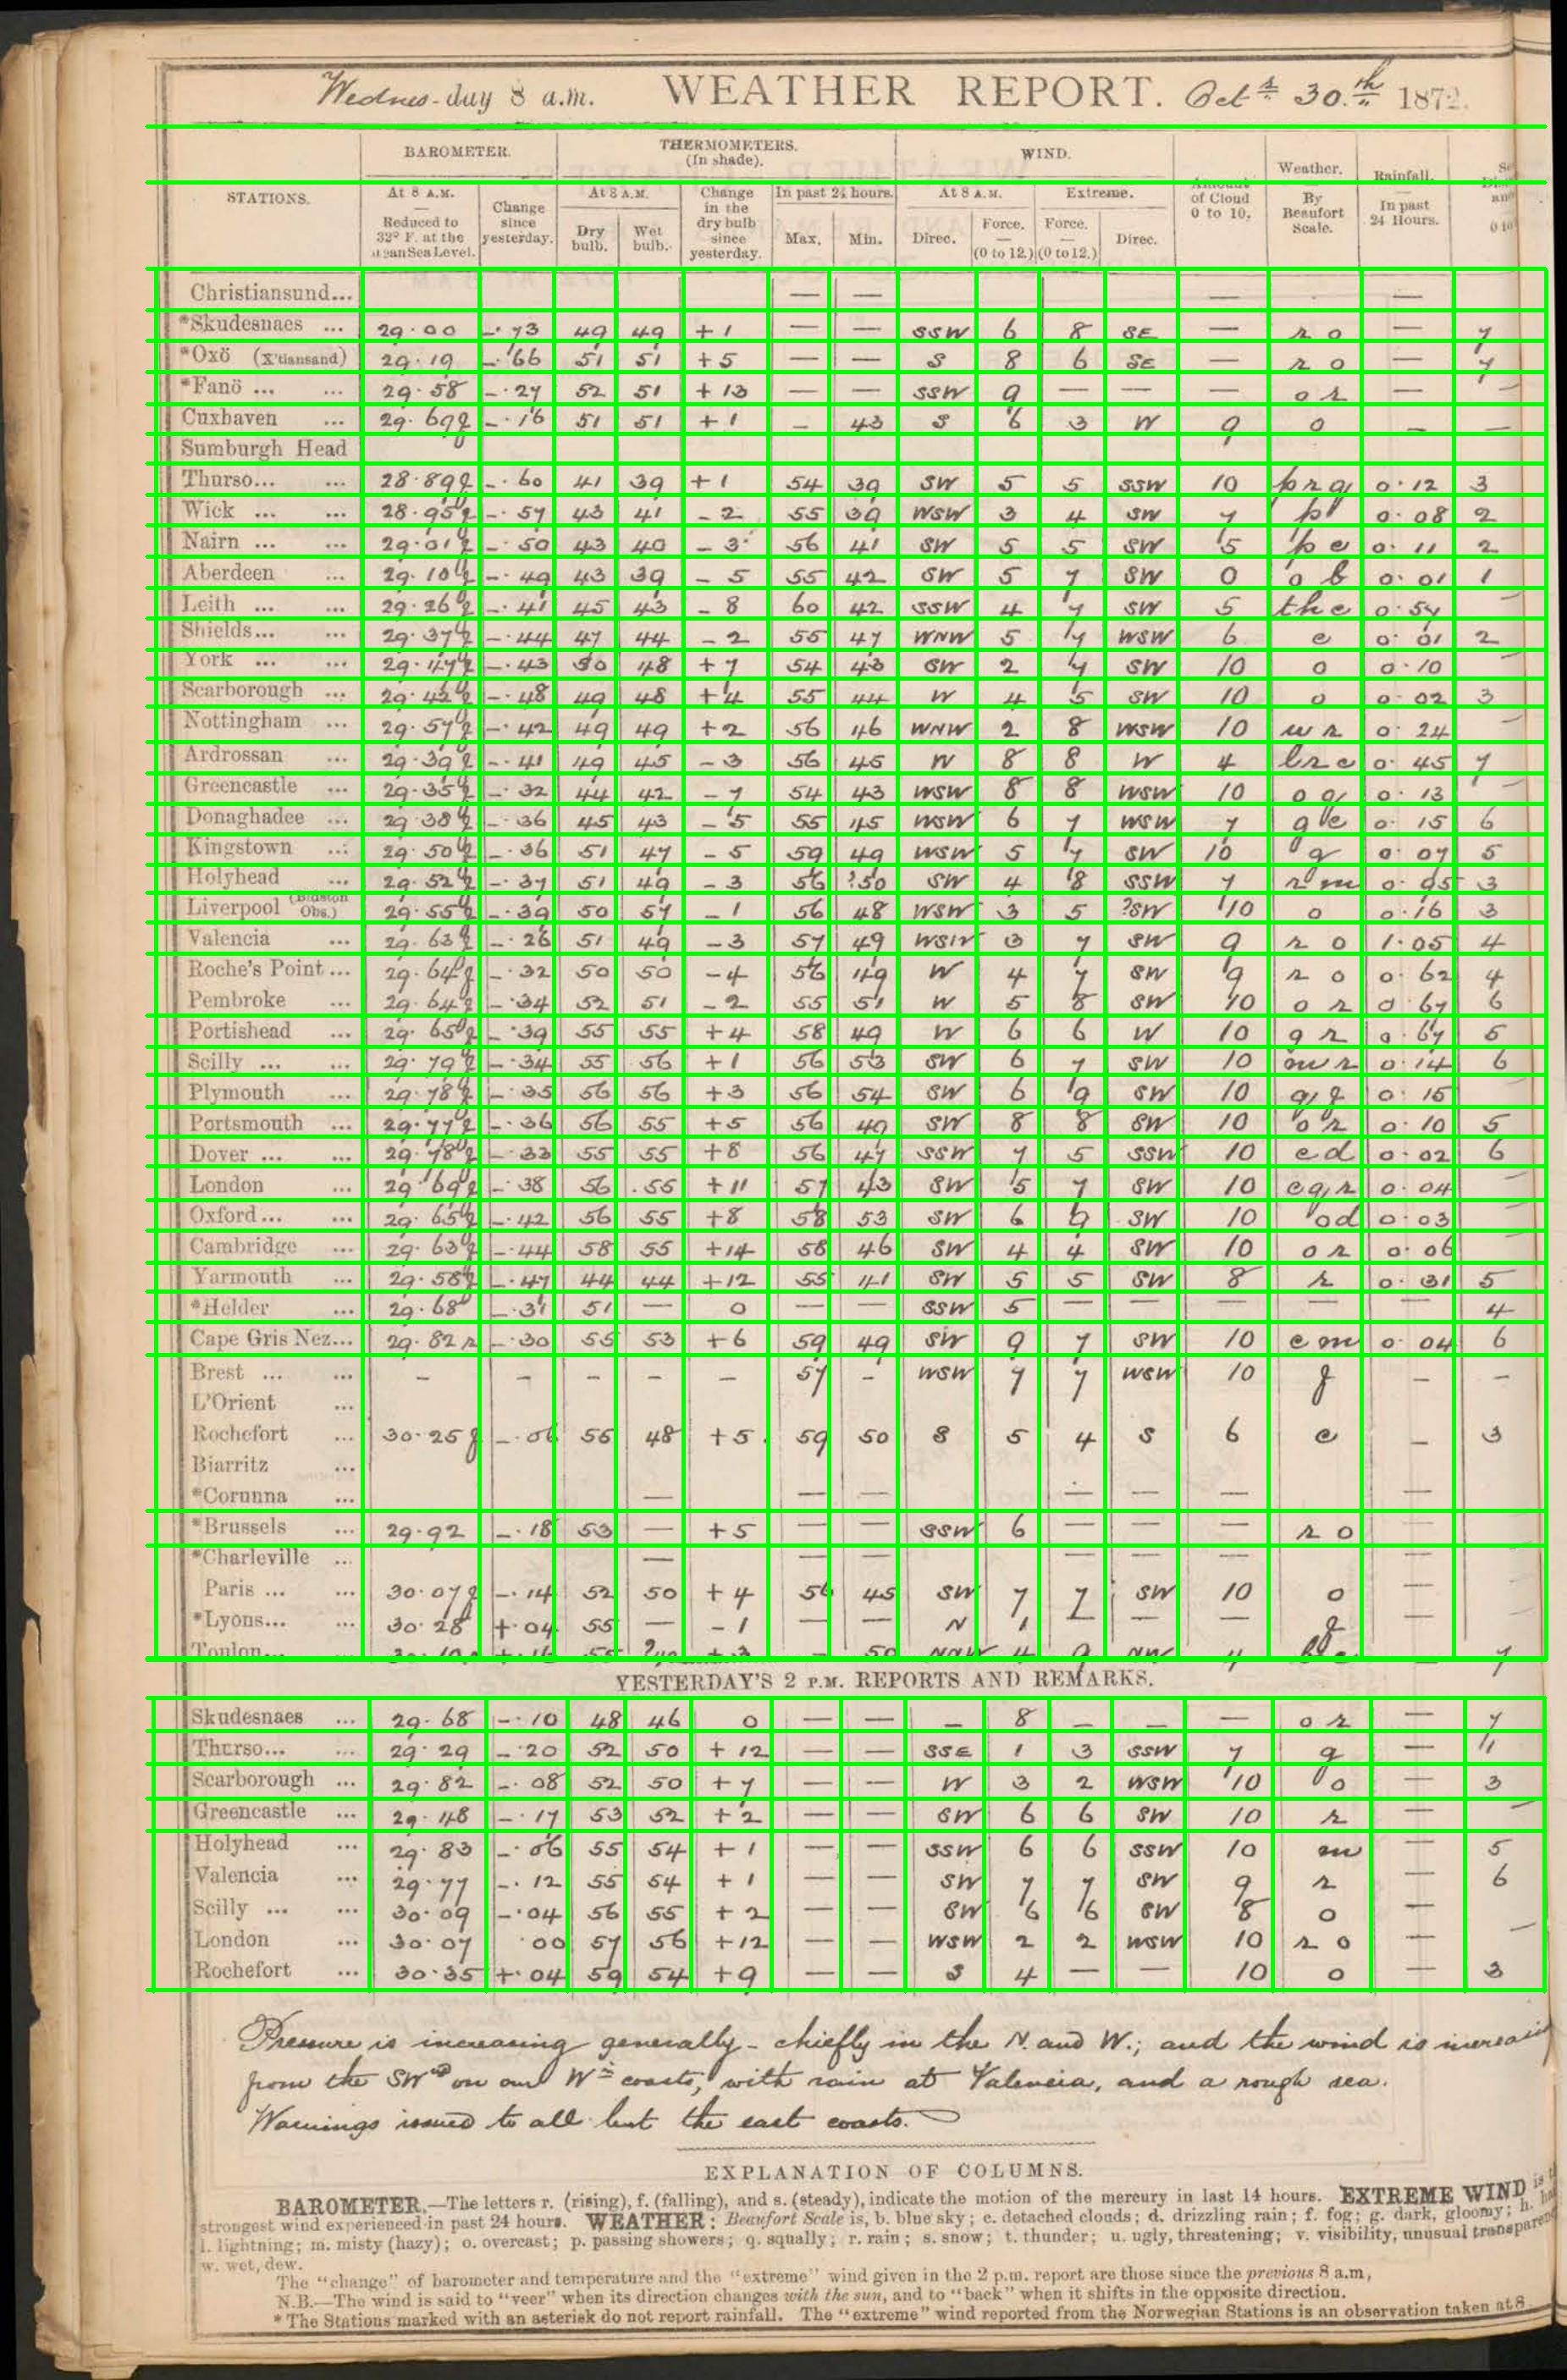 Wednes-day 8 a.m. WEATHER REPORT. Oct.r 30.th 1872.
STATIONS. BAROMETER. THERMOMETERS. (In shade). WIND. of Cloud 0 to 10. Weather. By Beaufort Scale. Rainfall. In past 24 Hours.
At 8 A.M. Reduced to 32° F. at the Sea Level. Change since yesterday. At 8 A.M. Dry bulb. Wet bulb. Change in the dry bulb since yesterday. In past 24 hours. Max. Min. At 8 A.M. Direc. Force. (0 to 12.) Extreme. Force. (0 to 12.) Direc.
Christiansund... — — — —
*Skudesnaes ... 29.00 -.73 49 49 +1 — — SSW 6 8 SE — r o — 7
*Oxö (X'tiansand) 29.19 -.66 51 51 +5 — — S 8 6 SE — r o — 7
*Fanö ... ... 29.58 -.27 52 51 +13 — — SSW 9 — — — o r — —
Cuxhaven ... 29.69 f -.16 51 51 +1 — 43 S 6 3 W 9 o — —
Sumburgh Head
Thurso... ... 28.89 f -.60 41 39 +1 54 39 SW 5 5 SSW 10 p r q 0.12 3
Wick ... ... 28.95 f -.57 43 41 -2 55 39 WSW 3 4 SW 7 p 0.08 2
Nairn ... ... 29.01 f -.50 43 40 -3 56 41 SW 5 5 SW 5 p c 0.11 2
Aberdeen ... 29.10 f -.49 43 39 -5 55 42 SW 5 7 SW 0 o b 0.01 1
Leith ... ... 29.26 f -.41 45 43 -8 60 42 SSW 4 7 SW 5 th c 0.57 —
Shields... ... 29.37 f -.44 47 44 -2 55 47 WNW 5 7 WSW 6 c 0.01 2
York ... ... 29.47 f -.43 50 48 +7 54 43 SW 2 7 SW 10 o 0.10 —
Scarborough ... 29.42 f -.48 49 48 +4 55 44 W 4 5 SW 10 o 0.02 3
Nottingham ... 29.57 f -.42 49 49 +2 56 46 WNW 2 8 WSW 10 w r 0.24 —
Ardrossan ... 29.39 f -.41 49 45 -3 56 45 W 8 8 W 4 b r c 0.45 7
Greencastle ... 29.35 f -.32 44 42 -7 54 43 WSW 8 8 WSW 10 o q 0.13 —
Donaghadee ... 29.38 f -.36 45 43 -5 55 45 WSW 6 7 WSW 7 q c 0.15 6
Kingstown ... 29.50 f -.36 51 47 -5 59 49 WSW 5 7 SW 10 g 0.07 5
Holyhead ... 29.52 f -.37 51 49 -3 56 ?50 SW 4 8 SSW 7 r m 0.05 3
Liverpool (Bidston Obs.) 29.55 f -.39 50 57 -1 56 48 WSW 3 5 ?SW 10 o 0.16 3
Valencia ... 29.63 f -.26 51 49 -3 57 49 WSW 3 7 SW 9 r o 1.05 4
Roche's Point ... 29.64 f -.32 50 50 -4 56 49 W 4 7 SW 9 r o 0.62 4
Pembroke ... 29.64 f -.34 52 51 -2 55 51 W 5 8 SW 10 o r 0.67 6
Portishead ... 29.65 f -.39 55 55 +4 58 49 W 6 6 W 10 g r 0.67 5
Scilly ... ... 29.79 f -.34 55 56 +1 56 53 SW 6 7 SW 10 m r 0.14 6
Plymouth ... 29.78 f -.35 56 56 +3 56 54 SW 6 9 SW 10 q f 0.15
Portsmouth ... 29.77 f -.36 56 55 +5 56 49 SW 8 8 SW 10 o r 0.10 5
Dover ... ... 29.78 f -.33 55 55 +8 56 47 SSW 7 5 SSW 10 c d 0.02 6
London ... 29.69 f -.38 56 55 +11 57 43 SW 5 7 SW 10 c q r 0.04 —
Oxford... ... 29.65 f -.42 56 55 +8 58 53 SW 6 9 SW 10 o d 0.03 —
Cambridge ... 29.63 f -.44 58 55 +14 58 46 SW 4 4 SW 10 o r 0.06
Yarmouth ... 29.58 f -.47 44 44 +12 55 41 SW 5 5 SW 8 r 0.31 5
*Helder ... 29.68 -.31 51 — 0 — — SSW 5 — — — — — 4
Cape Gris Nez... 29.82 r -.30 55 53 +6 59 49 SW 9 7 SW 10 c m 0.04 6
Brest ... ... — — — — — 57 — WSW 7 7 WSW 10 f — —
L'Orient ...
Rochefort ... 30.25 f -.06 55 48 +5 59 50 S 5 4 S 6 c — 3
Biarritz ...
*Corunna ... — — — — — — —
*Brussels ... 29.92 -.18 53 — +5 — — SSW 6 — — — r o —
*Charleville ... — — — — — — —
Paris ... ... 30.07 f -.14 52 50 +4 56 45 SW 7 7 SW 10 o —
*Lyons... ... 30.28 +.04 55 — -1 — — N 1 — — — f —
Toulon... 55 — 50 NNW 4 9 NW 4 — 7
YESTERDAY'S 2 P.M. REPORTS AND REMARKS.
Skudesnaes ... 29.68 -.10 48 46 0 — — — 8 — — — o r — 7
Thurso... ... 29.29 -.20 52 50 +12 — — SSE 1 3 SSW 7 g — 1
Scarborough ... 29.82 -.08 52 50 +7 — — W 3 2 WSW 10 o — 3
Greencastle ... 29.48 -.17 53 52 +2 — — SW 6 6 SW 10 r — —
Holyhead ... 29.83 -.06 55 54 +1 — — SSW 6 6 SSW 10 m — 5
Valencia ... 29.77 -.12 55 54 +1 — — SW 7 7 SW 9 r — 6
Scilly ... ... 30.09 -.04 56 55 +2 — — SW 6 6 SW 8 o —
London ... 30.07 .00 57 56 +12 — — WSW 2 2 WSW 10 r o — —
Rochefort ... 30.35 +.04 59 54 +9 — — S 4 — — 10 o — 3
Pressure is increasing generally - chiefly in the N. and W.; and the wind is
from the SWd on our Wn coasts, with rain at Valencia, and a rough sea.
Warnings issued to all but the east coasts.
EXPLANATION OF COLUMNS.
BAROMETER.—The letters r. (rising), f. (falling), and s. (steady), indicate the motion of the mercury in last 14 hours. EXTREME WIND is
strongest wind experienced in past 24 hours. WEATHER: Beaufort Scale is, b. blue sky; c. detached clouds; d. drizzling rain; f. fog; g. dark, gloomy; h.
l. lightning; m. misty (hazy); o. overcast; p. passing showers; q. squally; r. rain; s. snow; t. thunder; u. ugly, threatening; v. visibility, unusual
w. wet, dew.
The "change" of barometer and temperature and the "extreme" wind given in the 2 p.m. report are those since the previous 8 a.m,
N.B.—The wind is said to "veer" when its direction changes with the sun, and to "back" when it shifts in the opposite direction.
* The Stations marked with an asterisk do not report rainfall. The "extreme" wind reported from the Norwegian Stations is an observation taken at 8